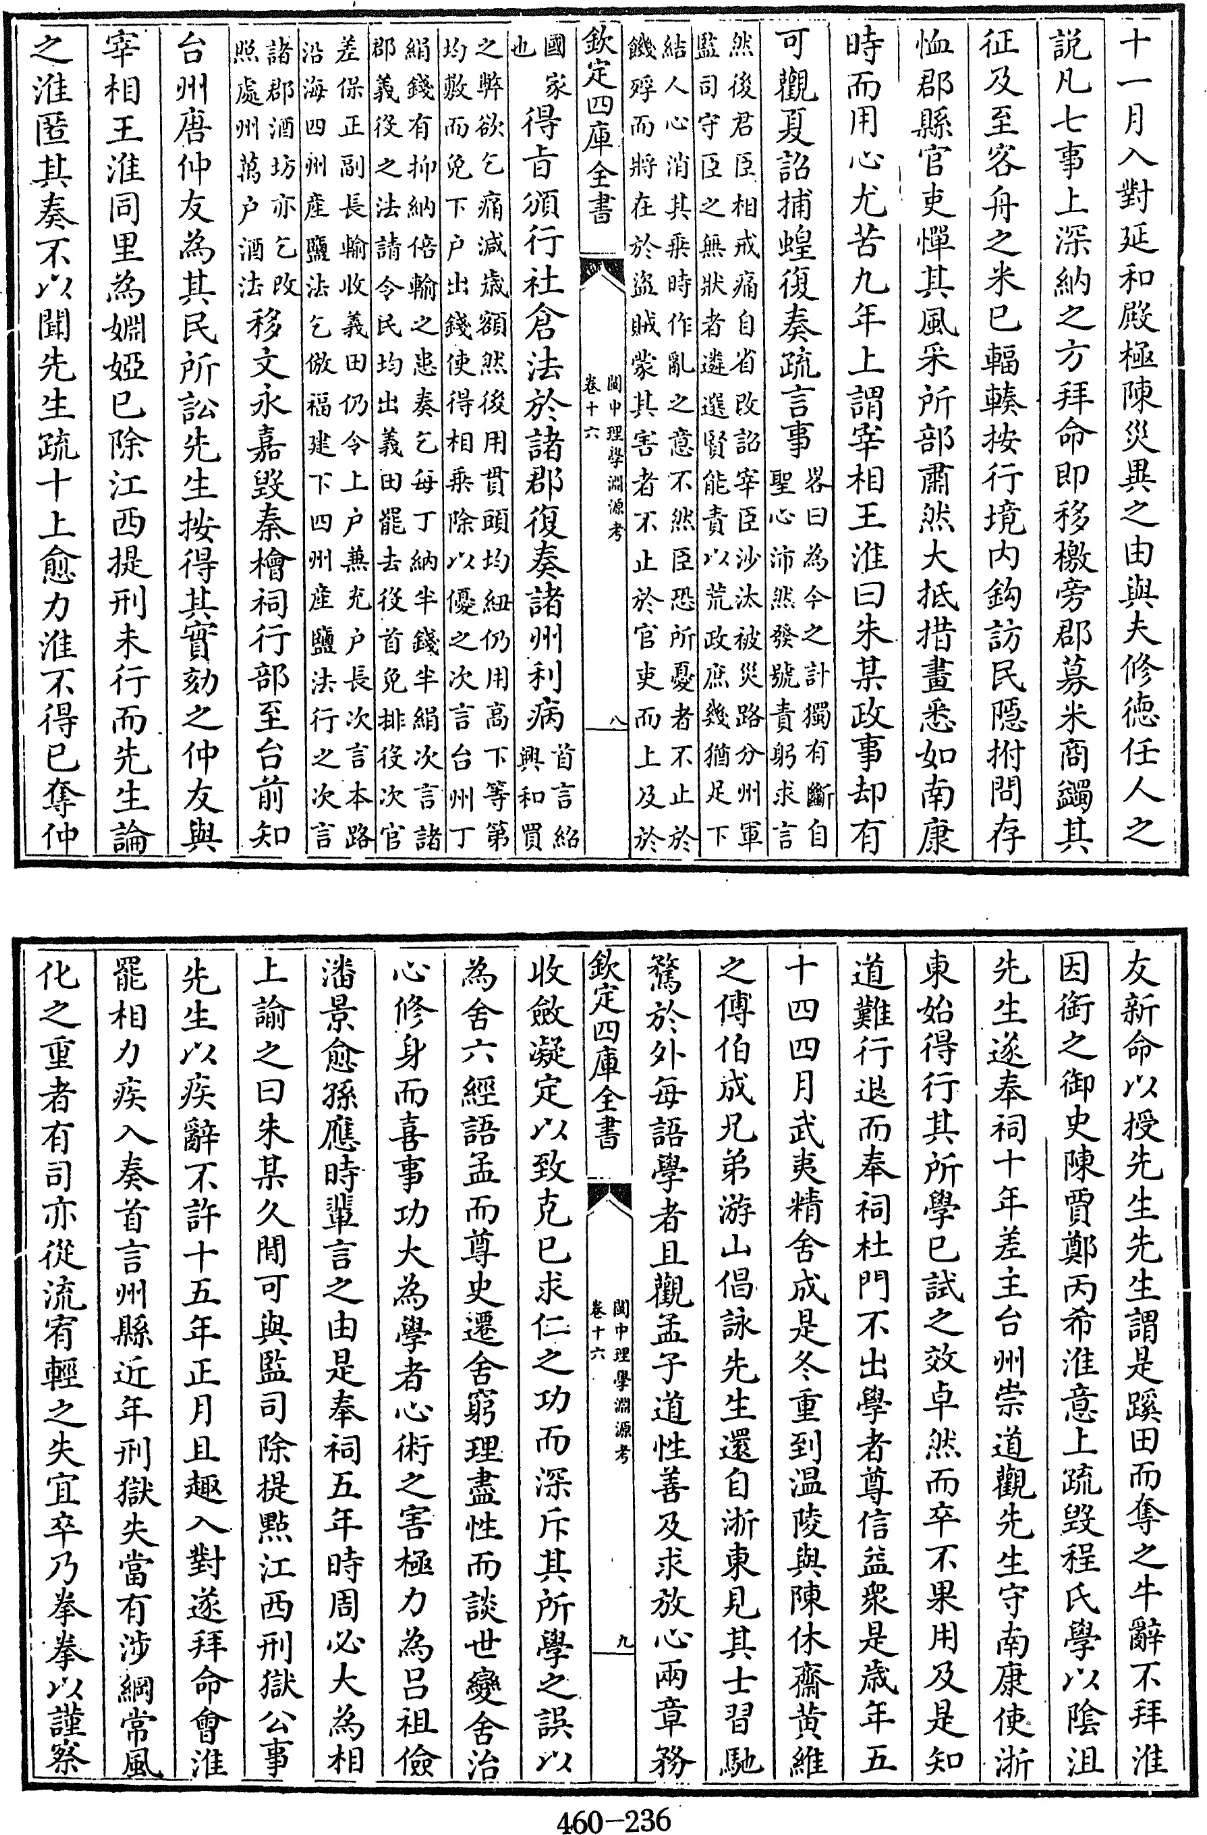 十一月入對延和殿極陳災異之由與夫修徳任人之
説凡七事上深納之方拜命即移檄旁郡募米商蠲其
征及至客舟之米已輻輳按行境内鈎訪民隠拊問存
恤郡縣官吏憚其風采所部肅然大抵措畫悉如南康
時而用心尤苦九年上謂宰相王淮曰朱某政事却有
可觀夏詔捕蝗復奏疏言事
畧曰為今之計獨有斷自
聖心沛然發號責躬求言
然後君臣相戒痛自省改詔宰臣沙汰被災路分州軍
監司守臣之無狀者遴選賢能責以荒政庶幾猶足下
結人心消其乗時作亂之意不然臣恐所憂者不止於
饑殍而將在於盜賊蒙其害者不止於官吏而上及於
欽定四庫全書
閩中理學淵源考
卷十六
八
國家
也
得旨頒行社倉法於諸郡復奏諸州利病
首言紹
興和買
之弊欲乞痛減歳額然後用貫頭均紐仍用高下等第
均敷而免下户出錢使得相乗除以優之次言台州丁
絹錢有抑納倍輸之患奏乞每丁納半錢半絹次言諸
郡義役之法請令民均出義田罷去役首免排役次官
差保正副長輸收義田仍令上户兼充户長次言本路
沿海四州産鹽法乞倣福建下四州産鹽法行之次言
諸郡酒坊亦乞改
照處州萬户酒法
移文永嘉毀秦檜祠行部至台前知
台州唐仲友為其民所訟先生按得其實劾之仲友與
宰相王淮同里為婣婭已除江西提刑未行而先生論
之淮匿其奏不以聞先生疏十上愈力淮不得已奪仲
友新命以授先生先生謂是蹊田而奪之牛辭不拜淮
因銜之御史陳賈鄭丙希淮意上疏毀程氏學以陰沮
先生遂奉祠十年差主台州崇道觀先生守南康使浙
東始得行其所學已試之效卓然而卒不果用及是知
道難行退而奉祠杜門不出學者尊信益衆是歳年五
十四四月武夷精舍成是冬重到温陵與陳休齋黄維
之傅伯成兄弟游山倡詠先生還自浙東見其士習馳
騖於外每語學者且觀孟子道性善及求放心兩章務
欽定四庫全書
閩中理學淵源考
卷十六
九
收斂凝定以致克已求仁之功而深斥其所學之誤以
為舍六經語孟而尊史遷舍窮理盡性而談世變舍治
心修身而喜事功大為學者心術之害極力為吕祖儉
潘景愈孫應時輩言之由是奉祠五年時周必大為相
上諭之曰朱某久閒可與監司除提點江西刑獄公事
先生以疾辭不許十五年正月且趣入對遂拜命會淮
罷相力疾入奏首言州縣近年刑獄失當有涉綱常風
化之重者有司亦從流宥輕之失宜卒乃拳拳以謹察
460-236